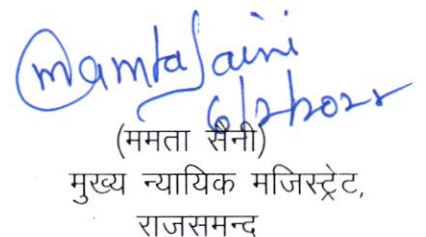 Mamta Saini
6/2/2022
(ममता सैनी)
मुख्य न्यायिक मजिस्ट्रेट,
राजसमन्द